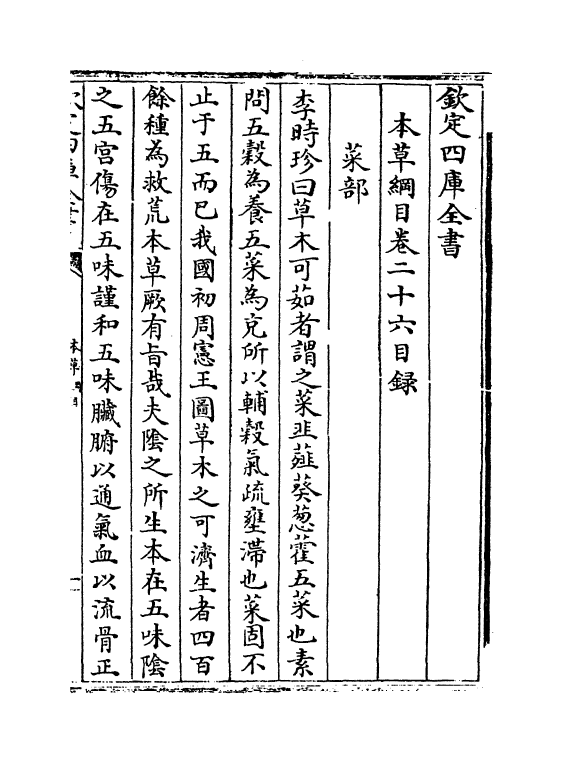 欽定四庫全書
本草綱目卷二十六目録
菜部
李時珍曰草木可茹者謂之菜韭薤葵葱藿五菜也素
問五穀為養五菜為充所以輔穀氣疏壅滯也菜固不
止于五而已我國初周憲王圖草木之可濟生者四百
餘種為救荒本草厥有旨哉夫陰之所生本在五味陰
之五宮傷在五味謹和五味臟腑以通氣血以流骨正